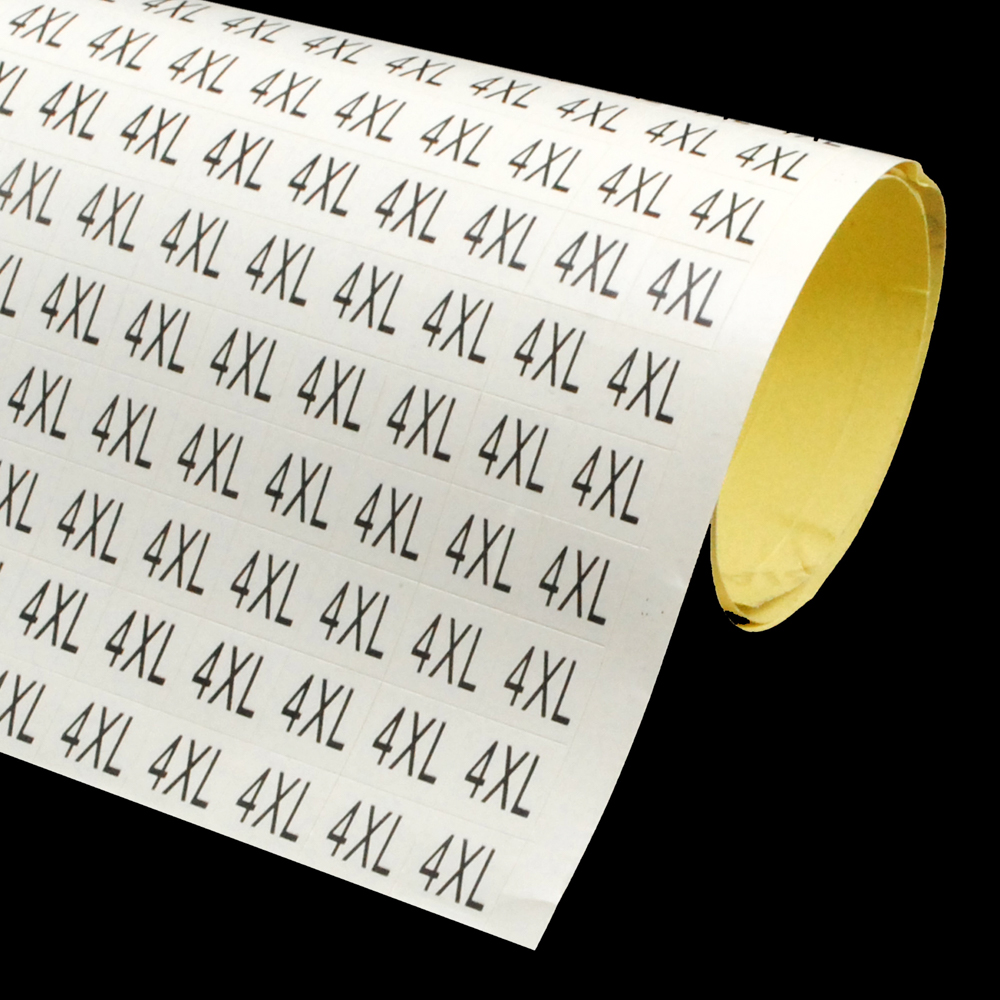 4XL 4XL 4XL 4XL 4XL 4XL 4XL 4XL
4XL 4XL 4XL 4XL 4XL 4XL 4XL 4XL 4XL
4XL 4XL 4XL 4XL 4XL 4XL 4XL 4XL
4XL 4XL 4XL 4XL 4XL 4XL 4XL 4XL
4XL 4XL 4XL 4XL 4XL 4XL 4XL
4XL 4XL 4XL 4XL 4XL 4XL 4XL
4XL 4XL 4XL 4XL 4XL 4XL
4XL 4XL 4XL 4XL 4XL 4XL
4XL 4XL 4XL 4XL 4XL